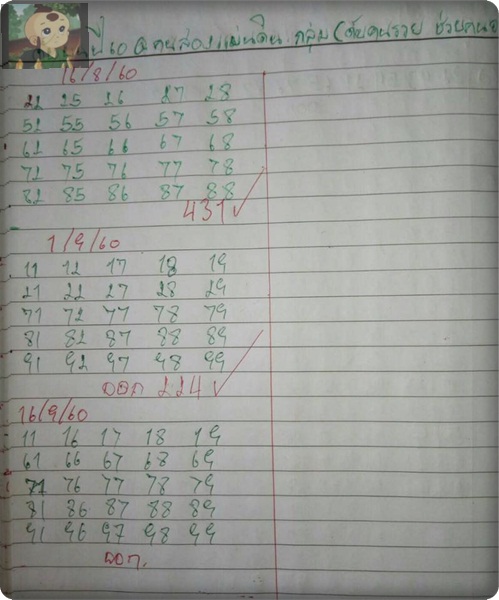 ปี 60 กลุ่ม คนรวย ช่วยคน
16/8/60
22 25 26 27 28
52 55 56 57 58
62 65 66 67 68
72 75 76 77 78
82 85 86 87 88
431 ✓
1/9/60
11 12 17 18 19
21 22 27 28 29
71 72 77 78 79
81 82 87 88 89
91 92 97 98 99
ออก 224 ✓
16/9/60
11 16 17 18 19
61 66 67 68 69
71 76 77 78 79
81 86 87 88 89
91 96 97 98 99
ออก.